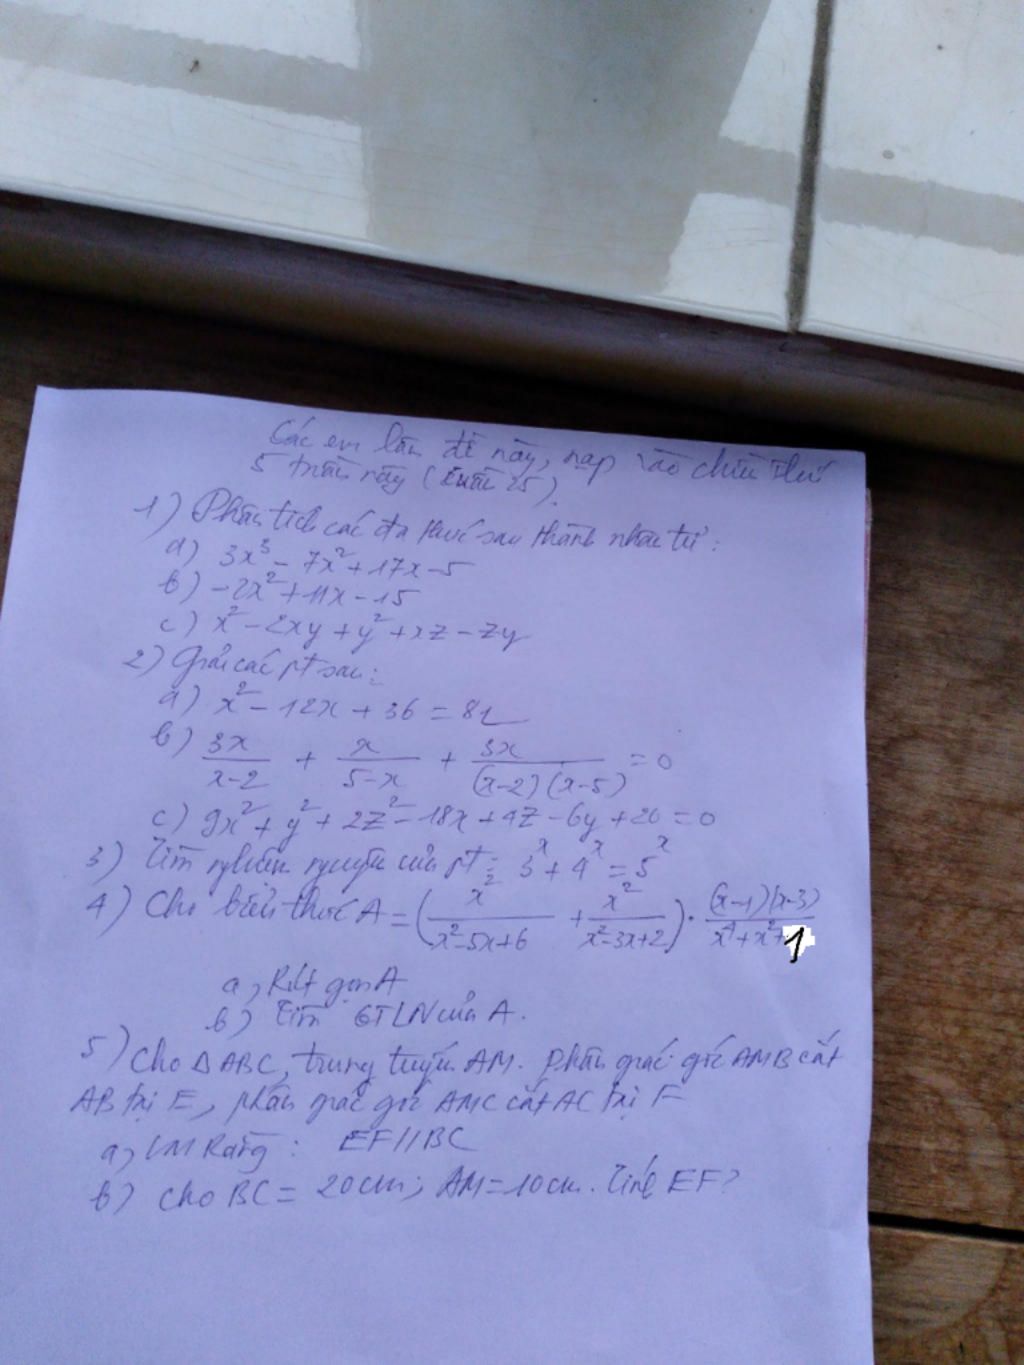 Các em làm đề này, nạp vào chiều thứ
5 tuần này (tuần 25).
1) Phân tích các đa thức sau thành nhân tử:
a) 3x³ - 7x² + 17x - 5
b) -2x² + 11x - 15
c) x² - 2xy + y² + xz - zy
2) Giải các pt sau:
a) x² - 12x + 36 = 81
b) 3x/(x-2) + x/(5-x) + 3x/((x-2)(x-5)) = 0
c) 9x² + y² + 2z² - 18x + 4z - 6y + 20 = 0
3) Tìm nghiệm nguyên của pt: 3ˣ + 4ˣ = 5ˣ
4) Cho biểu thức A = (x²/(x²-5x+6) + x²/(x²-3x+2)) · (x-1)(x-3)/(x⁴+x²+1)
a, Rút gọn A
b) Tìm GTLN của A.
5) Cho ΔABC, trung tuyến AM. Phân giác góc AMB cắt
AB tại E, phân giác góc AMC cắt AC tại F
a, CM Rằng: EF//BC
b) Cho BC = 20cm; AM = 10cm. Tính EF?